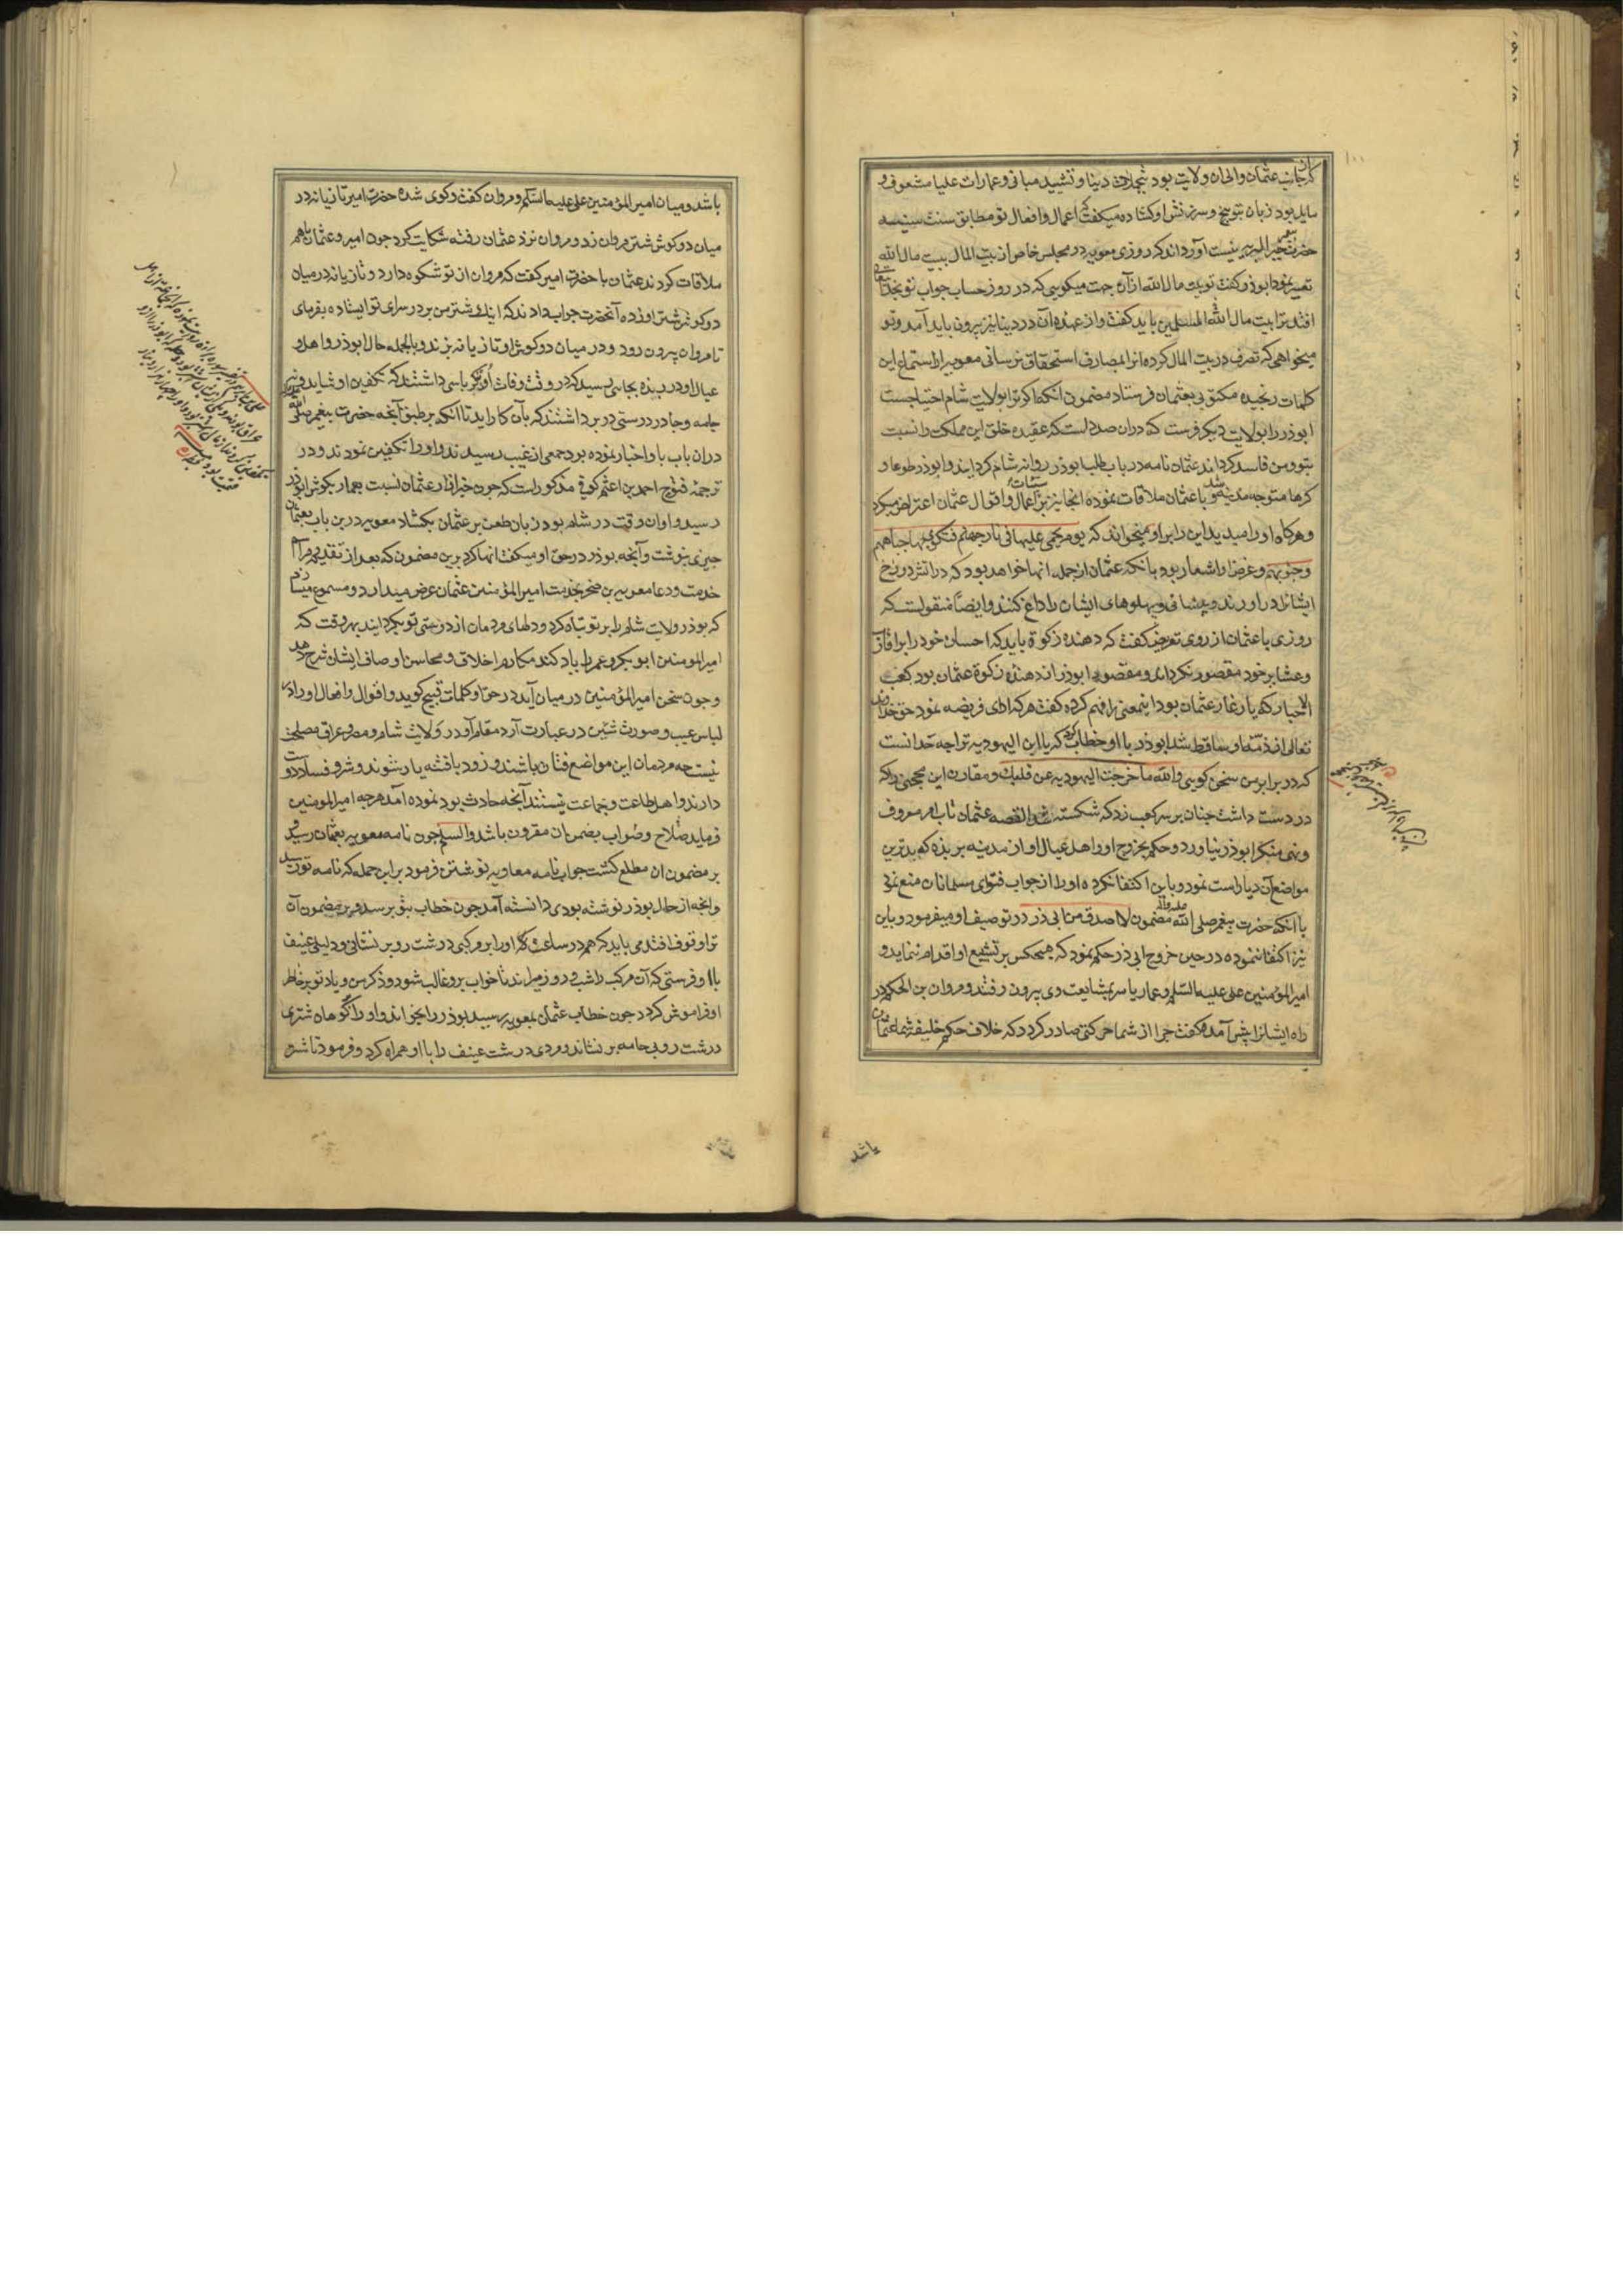 که از جانب عثمان والی ان ولایت بود بتجملات دنیا و تشیید مبانی و عمارات علیا مشعوف و
مایل بود زبان بتوبیخ و سرزنش او کشاده میکفت که اعمال و افعال تو مطابق سنت سنیه
حضرت خیر البریه نیست آورده‌اند که روزی معویه در مجلس خاص از بیت المال ببیت مال الله
تعبیر نمود ابوذر کفت تو بیت مال الله از آن جهت میکویی که در روز حساب جواب تو بخدا
افتد ترا بیت مال المسلمین باید کفت و از عهده آن در دنیا نیز بیرون باید آمد و تو
میخواهی که تصرف در بیت المال کرده انرا بمصارف استحقاق نرسانی معویه از استماع این
کلمات رنجیده مکتوبی بعثمان فرستاد مضمون انکه اکر ترا بولایت شام احتیاجست
ابوذر را بولایت دیکر فرست که دران صدد است که عقیده خلق این مملکت را نسبت
بتو و من فاسد کرداند عثمان نامه در باب طلب ابوذر روانه شام کردانید و ابوذر طوعا و
کرها متوجه مدینه شد و با عثمان ملاقات نموده انجا نیز بر اعمال و اقوال عثمان اعتراض میکرد
و هرکاه او را میدید این آیه را بر او میخواند که یوم یحمی علیها فی نار جهنم فتکوی بها جباههم
و جنوبهم و غرض او اشعار بود بانکه عثمان از جمله انها خواهد بود که در آتش دوزخ
ایشانرا در اورند و پیشانی و پهلوهای ایشان را داغ کنند و ایضا منقولست که
روزی با عثمان از روی تعریض کفت که دهنده زکوة باید که احسان خود را بر اقارب
و عشایر خود مقصور نکرداند و مقصود ابوذر از دهنده زکوة عثمان بود کعب
الاحبار که یار غار عثمان بود اینمعنی را فهم کرده کفت هر که ادای فریضه نمود حق خدای
تعالی از ذمه او ساقط شد ابوذر با او خطاب کرد که یا ابن الیهودیه ترا چه حد انست
که در برابر من سخن کویی والله ما خرجت الیهودیه عن قلبک و مقارن این محجنی را که
در دست داشت چنان بر سر کعب زد که شکسته شد القصه عثمان تاب امر معروف
و نهی منکر ابوذر نیاورد و حکم بخروج او و اهل عیال او از مدینه بربذه که بدترین
مواضع آن دیار است نمود و باین اکتفا نکرده او را از جواب فتوای مسلمانان منع نمود
با انکه حضرت پیغمبر صلی الله علیه و اله مضمون لا اصدق من ابی ذر در توصیف او میفرمود و باین
نیز اکتفا ننموده در حین خروج ابی ذر حکم نمود که هیچکس بر تشییع او اقدام ننماید و
امیر المؤمنین علی علیه السلم و عمار یاسر بمشایعت وی بیرون رفتند و مروان بن الحکم در
راه ایشانرا پیش آمده کفت چرا از شما حرکتی صادر کردد که خلاف حکم خلیفه شما عثمان
باشد
باشد و میان امیر المؤمنین علی علیه السلم و مروان کفت و کوی شده حضرت امیر تازیانه در
میان دو کوش شتر مروان زد و مروان نزد عثمان رفته شکایت کرد چون امیر و عثمان باهم
ملاقات کردند عثمان با حضرت امیر کفت که مروان از تو شکوه دارد و تازیانه در میان
دو کوش شتر او زده آنحضرت جواب دادند که اینک شتر من بر در سرای تو ایستاده بفرمای
تا مروان بیرون رود و در میان دو کوش او تازیانه بزند و بالجمله حال ابوذر و اهل و
عیال او در ربذه بجایی رسید که در وقت وفات او کرباسی داشتند که تکفین او شاید و نه
جامه و چادر درستی در بر داشتند که بآن کار اید تا انکه بر طبق آنچه حضرت پیغمبر صلی الله
دران باب باو اخبار نموده بود جمعی از غیب رسیدند و او را تکفین نمودند و در
ترجمه فتوح احمد بن اعثم کوفی مذکور است که چون خبر ازار عثمان نسبت بعمار بکوش ابوذر
رسید و او ان وقت در شام بود زبان طعن بر عثمان بکشاد معویه درین باب بعثمان
چیزی بنوشت و آنچه بوذر در حق او میکفت انها کرد برین مضمون که بعد از تقدیم مراسم
خدمت و دعا معویه بن صخر بخدمت امیر المؤمنین عثمان عرض میدارد و مسموع میسازد
که بوذر ولایت شام را بر تو تباه کرد و دلهای مردمان از دوستی تو بکردانید بهر وقت که
امیر المومنین ابو بکر و عمر را یاد کند مکارم اخلاق و محاسن اوصاف ایشان شرح دهد
و چون سخن امیر المؤمنین در میان آید در حق او کلمات قبیح کوید و اقوال و افعال او را در
لباس عیب و صورت شین در عبارت آرد مقام او در ولایت شام و مصر و عراق مصلحت
نیست چه مردمان این مواضع فتان باشند و زود با فتنه یار شوند و شر و فساد دوست
دارند و اهل طاعت و جماعت نیستند آنچه حادث بود نموده آمد هرچه امیر المومنین
فرماید صلاح و صواب بضمن ان مقرون باشد والسلم چون نامه معویه بعثمان رسید و
بر مضمون ان مطلع کشت جواب نامه معاویه نوشتن فرمود بر این جمله که نامه تو رسید
و آنچه از حال بوذر نوشته بودی دانسته آمد چون خطاب بتو برسد و بر مضمون آن
ترا وقوف افتد می باید که هم در ساعت او را بر مرکبی درشت رو بر نشانی و دلیلی عنیف
با او فرستی که آن مرکب را شب و روز میراند تا خواب برو غالب شود و ذکر من و یاد تو بر خاطر
او فراموش کردد چون خطاب عثمان بمعویه رسید بوذر را بخواند و او را کوهان شتری
درشت رو بی جامه بر نشاند و مردی درشت عنیف را با او همراه کرد و فرمود تا شتر